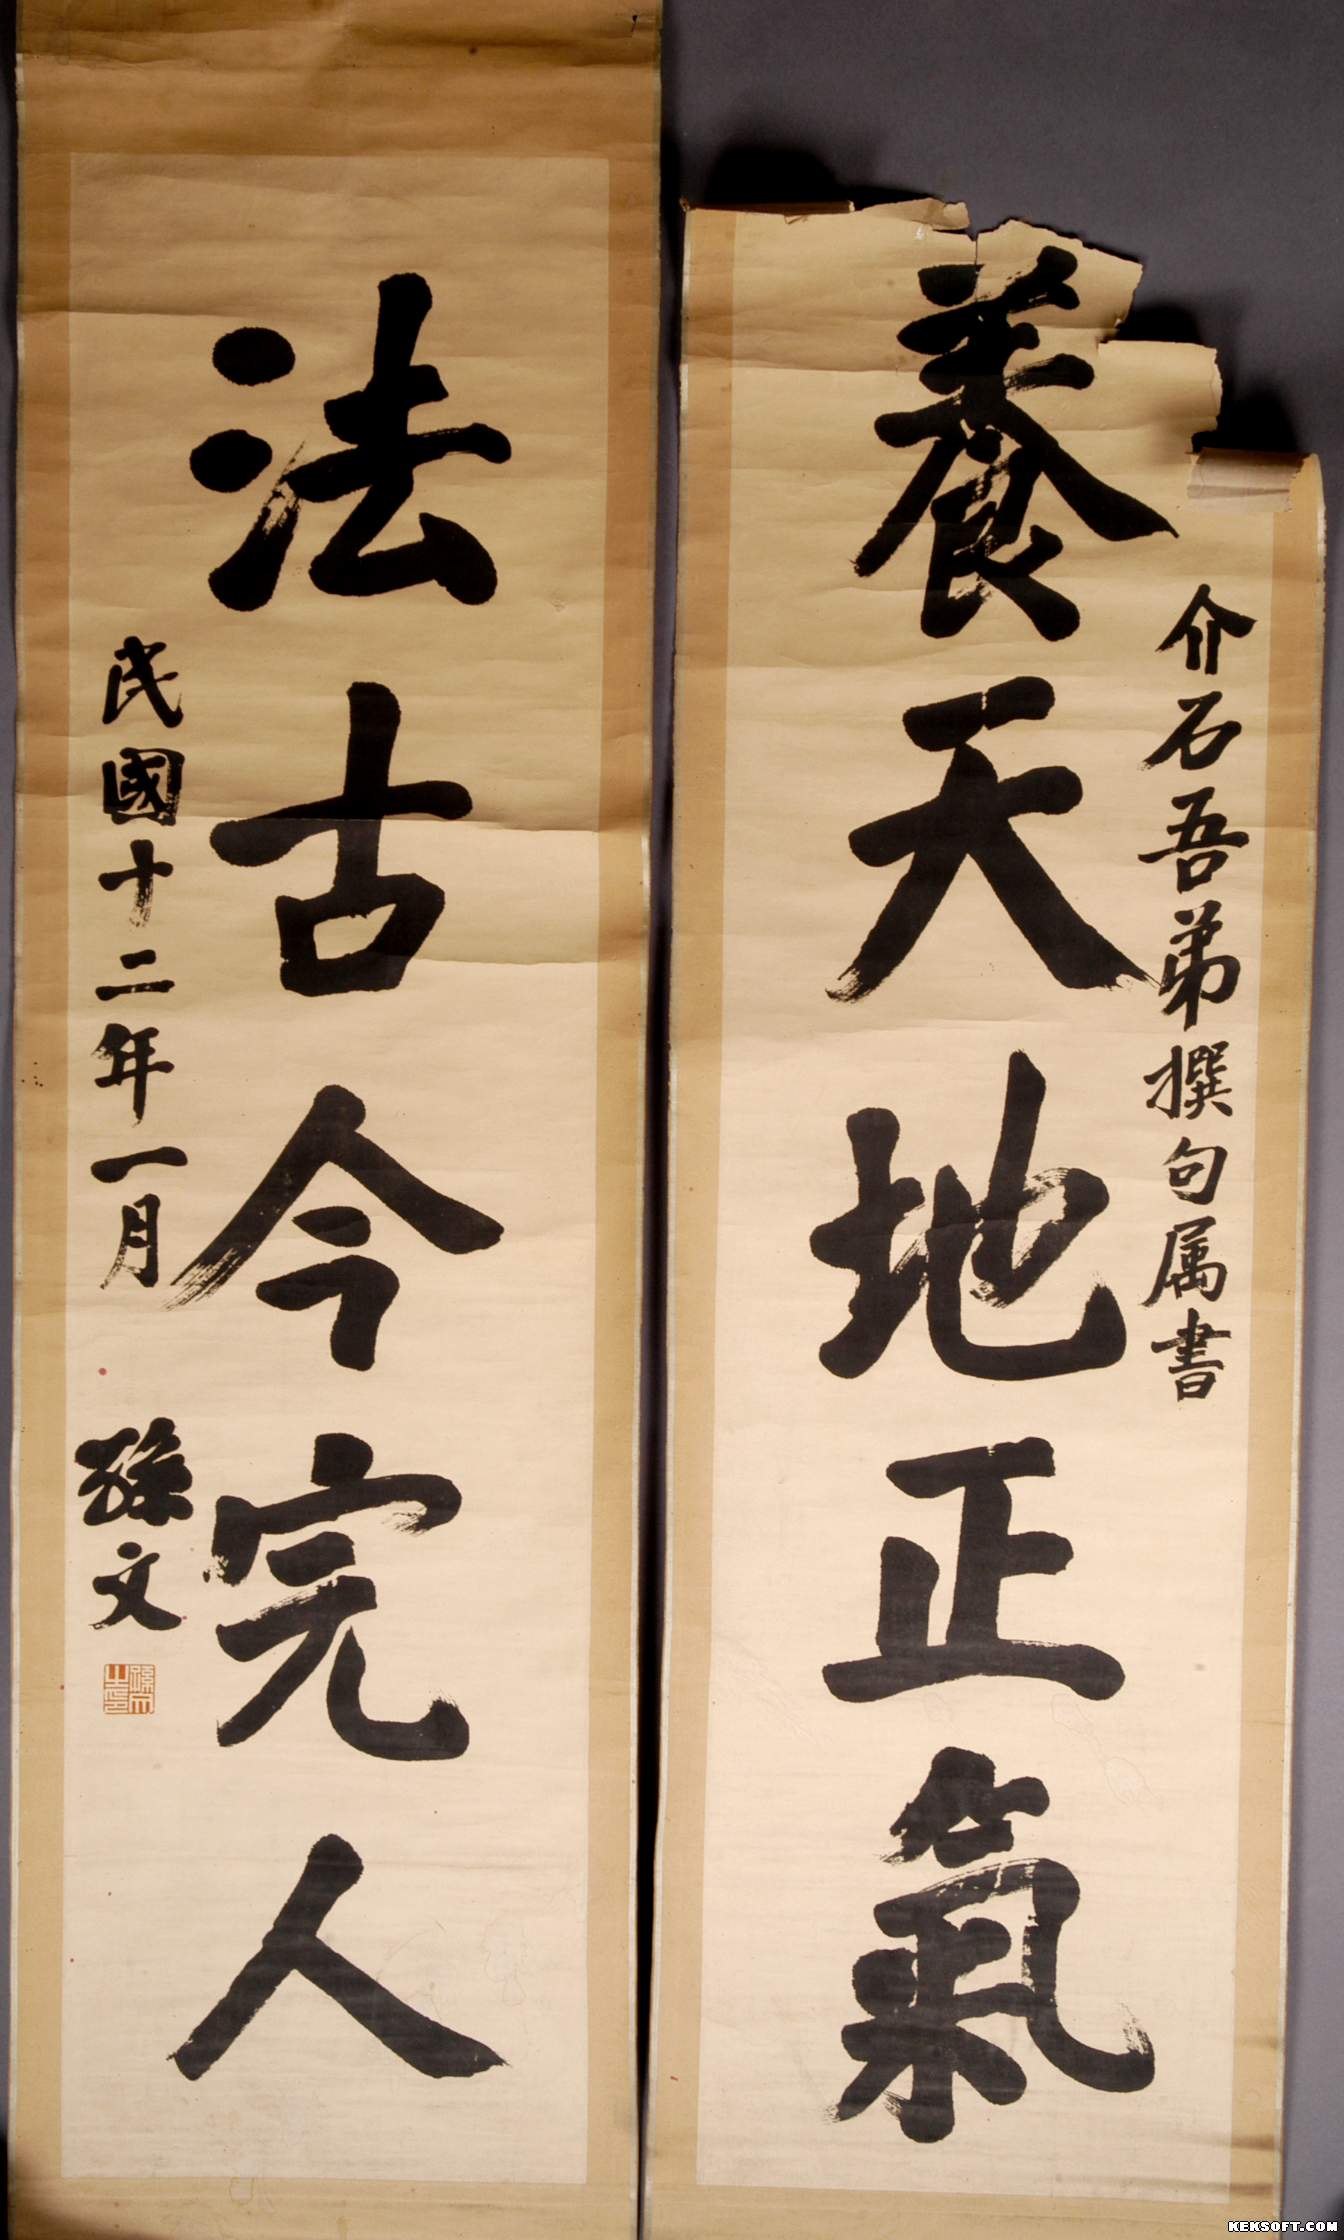 養天地正氣
介石吾弟撰句属書
法古今完人
民國十二年一月
孫文
孫文之印
KEKSOFT.COM